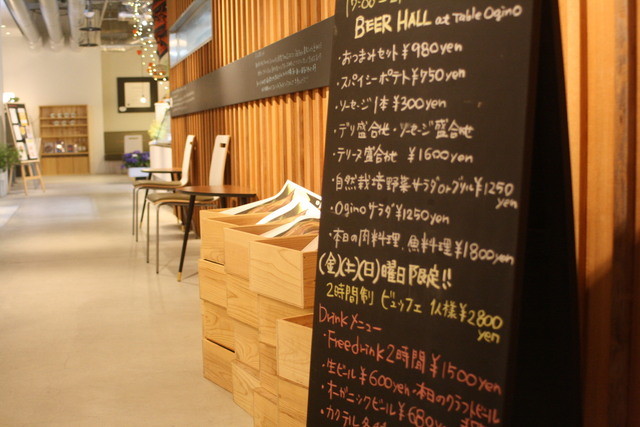 17:00
BEER HALL at Table Ogino
・おつまみセット ¥980yen
・スパイシーポテト ¥750yen
・ソーセージ1本 ¥300yen
・デリ盛合せ・ソーセージ盛合せ
・テリーヌ盛合せ ¥1600yen
・自然栽培野菜サラダorグリル ¥1250
yen
・Oginoサラダ ¥1250yen
・本日の肉料理、魚料理 ¥1800yen
(金)(土)(日)曜日限定!!
2時間制 ビュッフェ 1人様 ¥2800
yen
Drinkメニュー
・Freedrink 2時間 ¥1500yen
・生ビール ¥600yen・本日のクラフトビール
・オーガニックビール ¥680yen
・カクテル各種